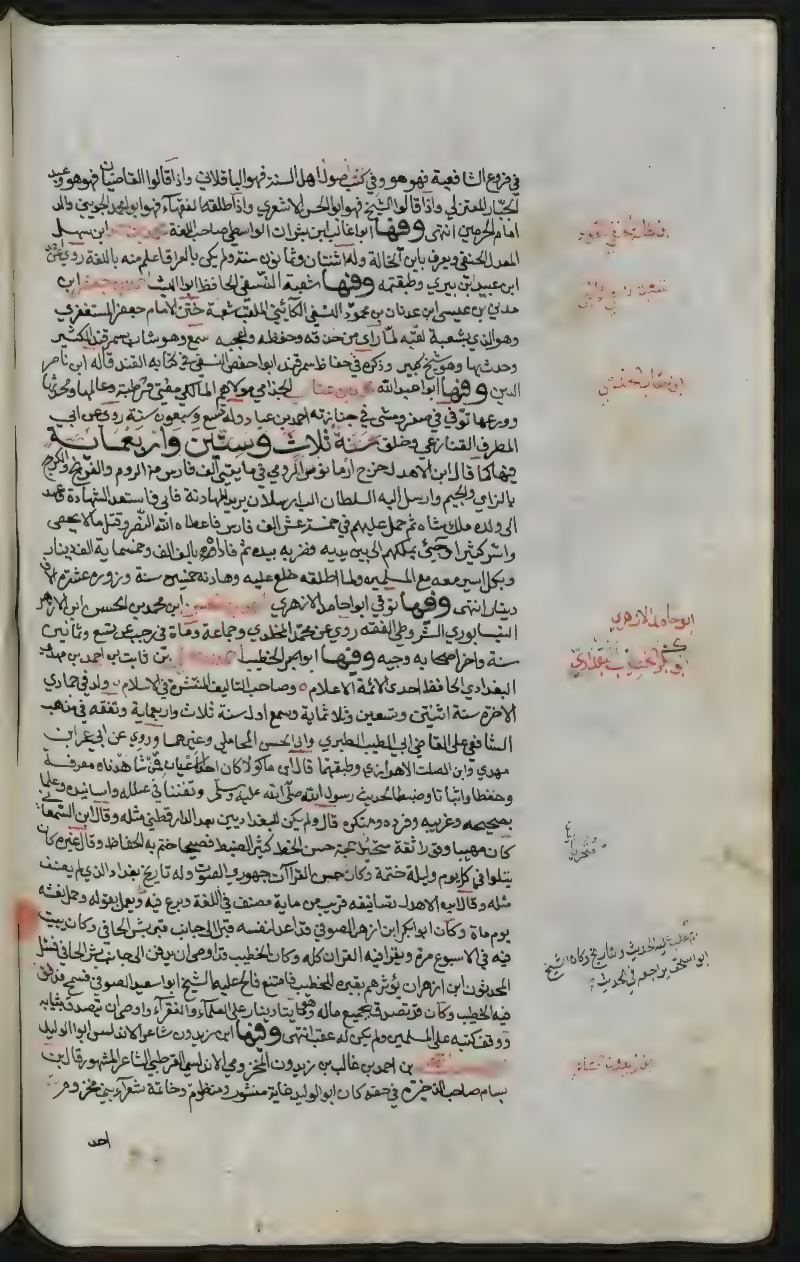 في فروع الشافعية فهو هو وفي كتب اصول اهل السنة فهو الباقلاني واذا قالوا القاضيان فهو هو وعبد
الجبار المعتزلي واذا قالوا الشيخ فهو ابو الحسن الاشعري واذا اطلقه الفقهاء فهو ابو محمد الجويني والد
امام الحرمين انتهى وفيها ابو غالب ابن بشران الواسطي صاحب اللغة محمد بن ابن سهل
المعدل الحنفي ويعرف بابن الخالة وله اثنتان وثمانون سنة ولم يكن بالعراق اعلم منه باللغة روى عن احمد
ابن عبيد بن بيري وطبقته وفيها شعبة النسفي الحافظ ابو الليث بن جعفر ابن
مدني بن عيسى ابن عدنان بن محمود النسفي الكائني الملقب شعبة ختن الامام جعفر المستغفري
وهو الذي بشعبة لقبه لما راى من حذقه وحفظه واعجبه سمع وهو شاب بسمرقند الكثير
وحدث بها وهو شيخ كبير وذكره في حفاظ سمرقند ابو احفص النسفي في كتابه القند قاله ابن ناصر
الدين وفيها ابو عبد الله محمد بن عتاب الجذامي مولاهم المالكي مفتي قرطبة وعالمها ومحدثها
وورعها توفي في صفر ومشى في جنازته احمد بن عباد وله تسع وسبعون سنة روى عن ابي
المطرف القنازعي وخلق سنة ثلاث وستين واربعماية
فيها كما قال ابن الاهدل خرج ارمانوس الرومي في مايتي الف فارس من الروم والفرنج والكرج
بالزاي والجيم وارسل اليه السلطان الب ارسلان يريد المهادنة فابى فاستعد للشهادة وعهد
الى ولده ملك شاه ثم حمل عليهم في خمسة عشر الف فارس فاعطاه الله النصر وقتل ما لا يحصى
واسر كثيرا وجيئ بملكهم الى بين يديه وضربه بيده ثم فاداه بالف الف وخمسماية الف دينار
وبكل اسير معه مع المسلمين ولما اطلقه خلع عليه وهادنه خمسين سنة وزوده عشرة الاف
دينار انتهى وفيها توفي ابو احامد الازهري احمد بن الحسن ابن محمد بن الحسن ابن الازهر
النيسابوري الشروطي الفقه روى عن محمد المخلدي وجماعة ومات في رجب عن تسع وثمانين
سنة واخر اصحابه وجيه وفيها ابو بكر الخطيب بن ثابت ابن احمد بن مهدي
البغدادي الحافظ احد الائمة الاعلام وصاحب التاليف المنتشرة في الاسلام ولد في جمادي
الاخرة سنة اثنتين وتسعين وثلاثماية وسمع اول سنة ثلاث واربعماية وتفقه في مذهب
الشافعي على القاضي ابي الطيب الطبري وابي الحسن المحاملي وغيرهما وروى عن ابي عمر ابن
مهدي وابن الصلت الاهوازي وطبقتهما قال ابن ماكولا كان احد الاعيان ممن شاهدناه معرفة
وحفظا واثباتا وضبطا لحديث رسول الله صلى الله عليه وسلم وتفننا في علله واسانيده وعلما
بصحيحه وغريبه وفرده ومنكره قال ولم يكن للبغداديين بعد الدارقطني مثله وقال ابن السمعاني
كان مهيبا وقورا ثقة متحريا حجة حسن الخط كثير الضبط فصيحا ختم به الحفاظ وقال غيره كان
يتلوا في كل يوم وليلة ختمة وكان حسن القراآت جهوري الصوت وله تاريخ بغداد الذي لم يصنف
مثله وقال ابن الاهدل تصانيفه قريب من ماية مصنف في اللغة وبرع فيه
يوم مات وكان ابو ابكر ابن ازهر الصوفي قد اعد لنفسه قبرا الى جانب قبر بشر الحافي وكان يبيت
فيه في الاسبوع مرة ويقرا فيه القران كله وكان الخطيب قد اوصى ان يدفن الى جانب بشر الحافي فسئل
المحدثون ابن ازهر ان يؤثرهم بقبره للخطيب فامتنع فالح عليه الشيخ ابو اسعيد الصوفي فسمح فدفن
فيه الخطيب وكان قد تصدق بجميع ماله وهو مايتا دينار على العلماء والفقراء واوصى ان يتصدق بثيابه
ووقف كتبه على المسلمين ولم يكن له عقب انتهى وفيها ابن زيدون شاعر الاندلس ابو الوليد
بن احمد بن غالب بن زيدون المخزومي الاندلسي القرطبي الشاعر المشهور قال ابن
بسام صاحب الذخيرة في حقه كان ابو الوليد غاية منثور ومنظوم وخاتمة شعراء بني مخزوم
احد
ابن عتاب
ابو حامد الازهري
ابو بكر الخطيب بغدادي
غلب عليه الحديث والتاريخ وكان الشيخ
ابو اسحق يراجعه في الحديث
ابن زيدون الشاعر